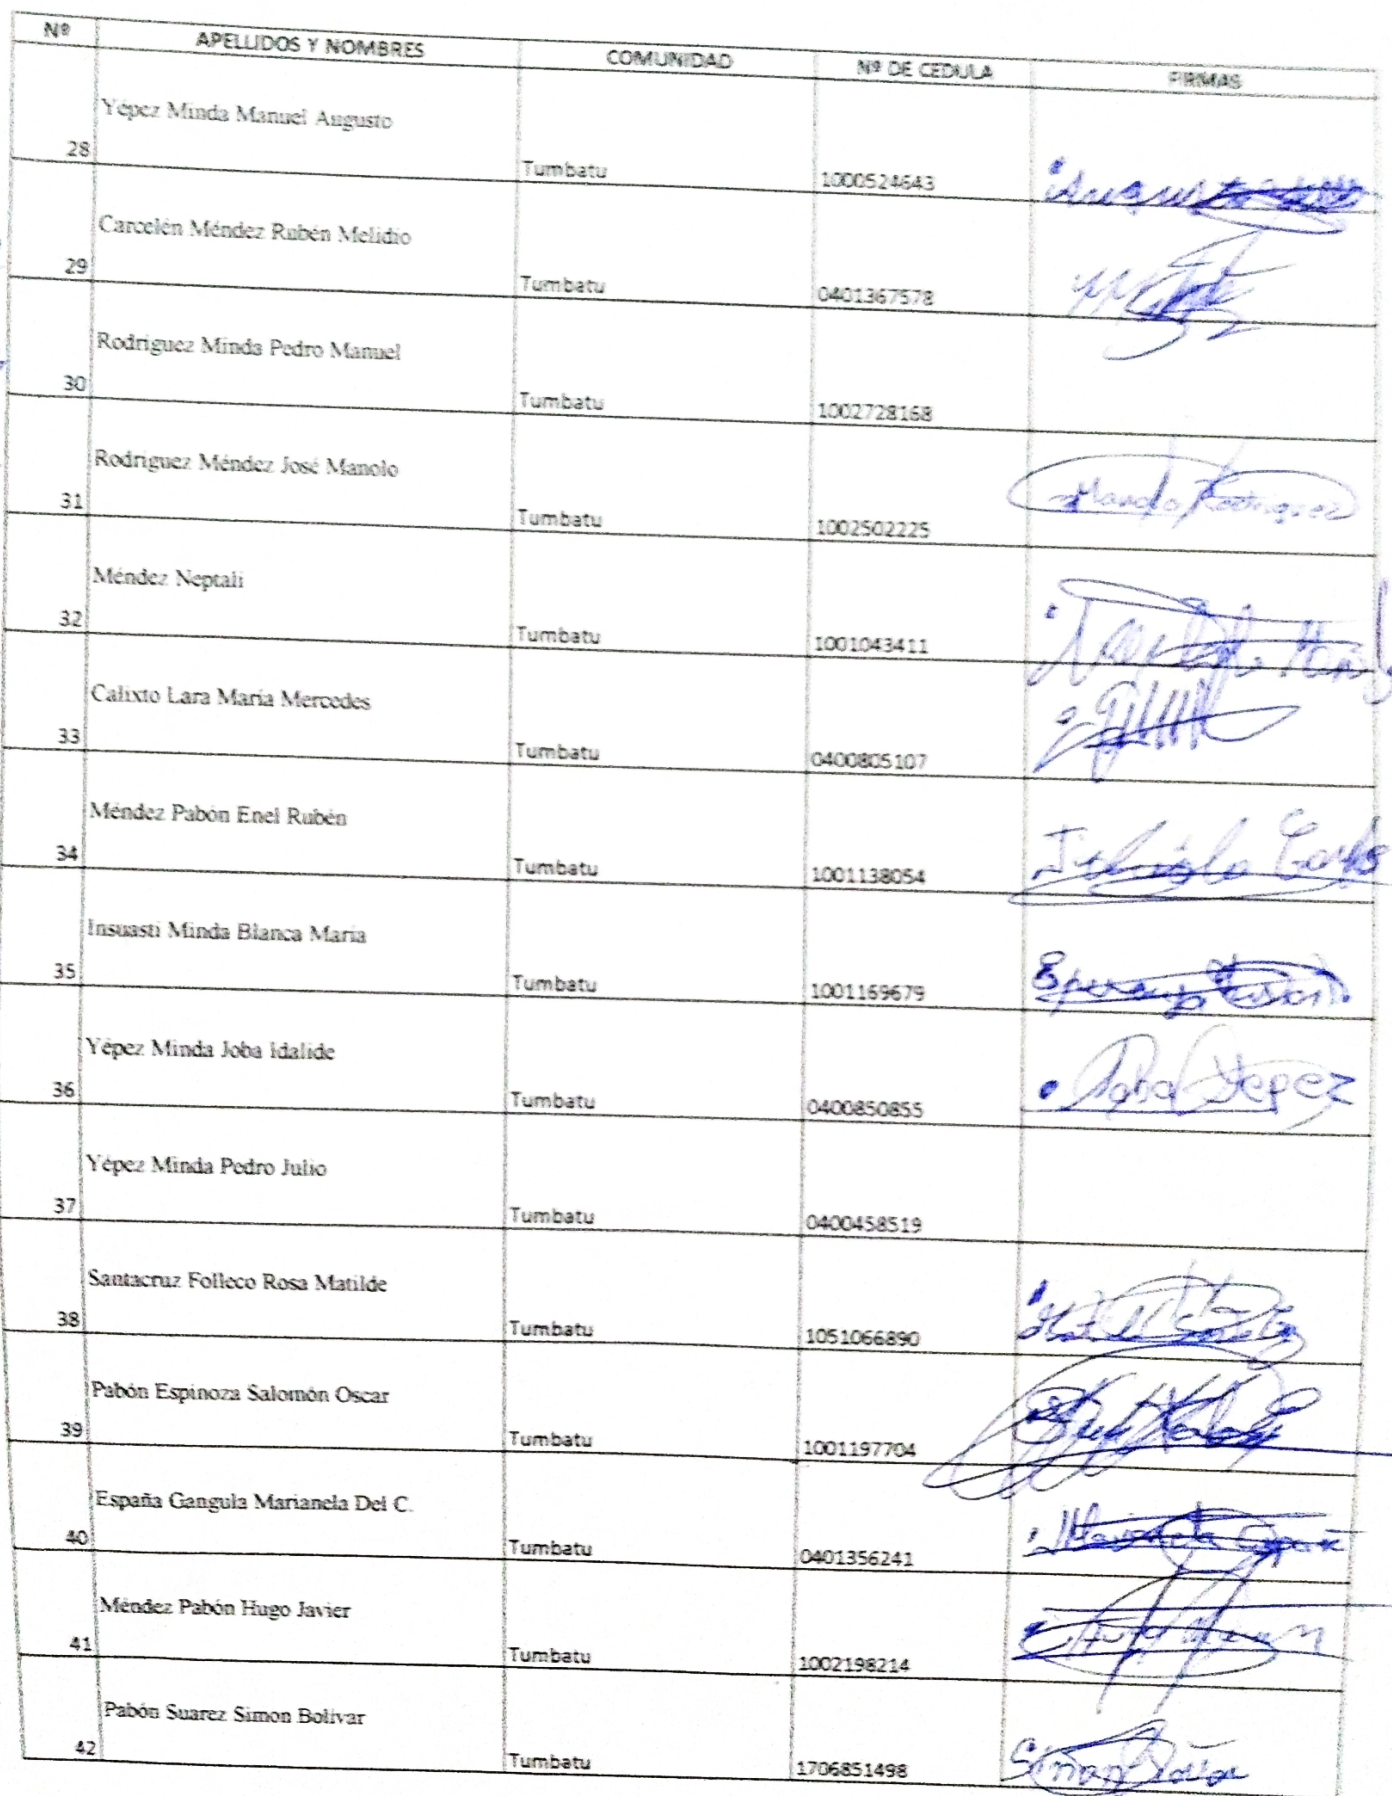 Nº APELLIDOS Y NOMBRES COMUNIDAD Nº DE CEDULA FIRMAS
28 Yépez Minda Manuel Augusto Tumbatu 1000524643 Augusto
29 Carcelén Méndez Rubén Melidio Tumbatu 0401367578
30 Rodríguez Minda Pedro Manuel Tumbatu 1002728168
31 Rodríguez Méndez José Manolo Tumbatu 1002502225 Manolo Rodriguez
32 Méndez Neptali Tumbatu 1001043411
33 Calixto Lara María Mercedes Tumbatu 0400805107
34 Méndez Pabón Enel Rubén Tumbatu 1001138054
35 Insuasti Minda Blanca María Tumbatu 1001169679
36 Yépez Minda Joba Idalide Tumbatu 0400850855 Joba Yepez
37 Yépez Minda Pedro Julio Tumbatu 0400458519
38 Santacruz Folleco Rosa Matilde Tumbatu 1051066890
39 Pabón Espinoza Salomón Oscar Tumbatu 1001197704
40 España Gangula Marianela Del C. Tumbatu 0401356241 Marianela España
41 Méndez Pabón Hugo Javier Tumbatu 1002198214
42 Pabón Suarez Simon Bolívar Tumbatu 1706851498 Simon